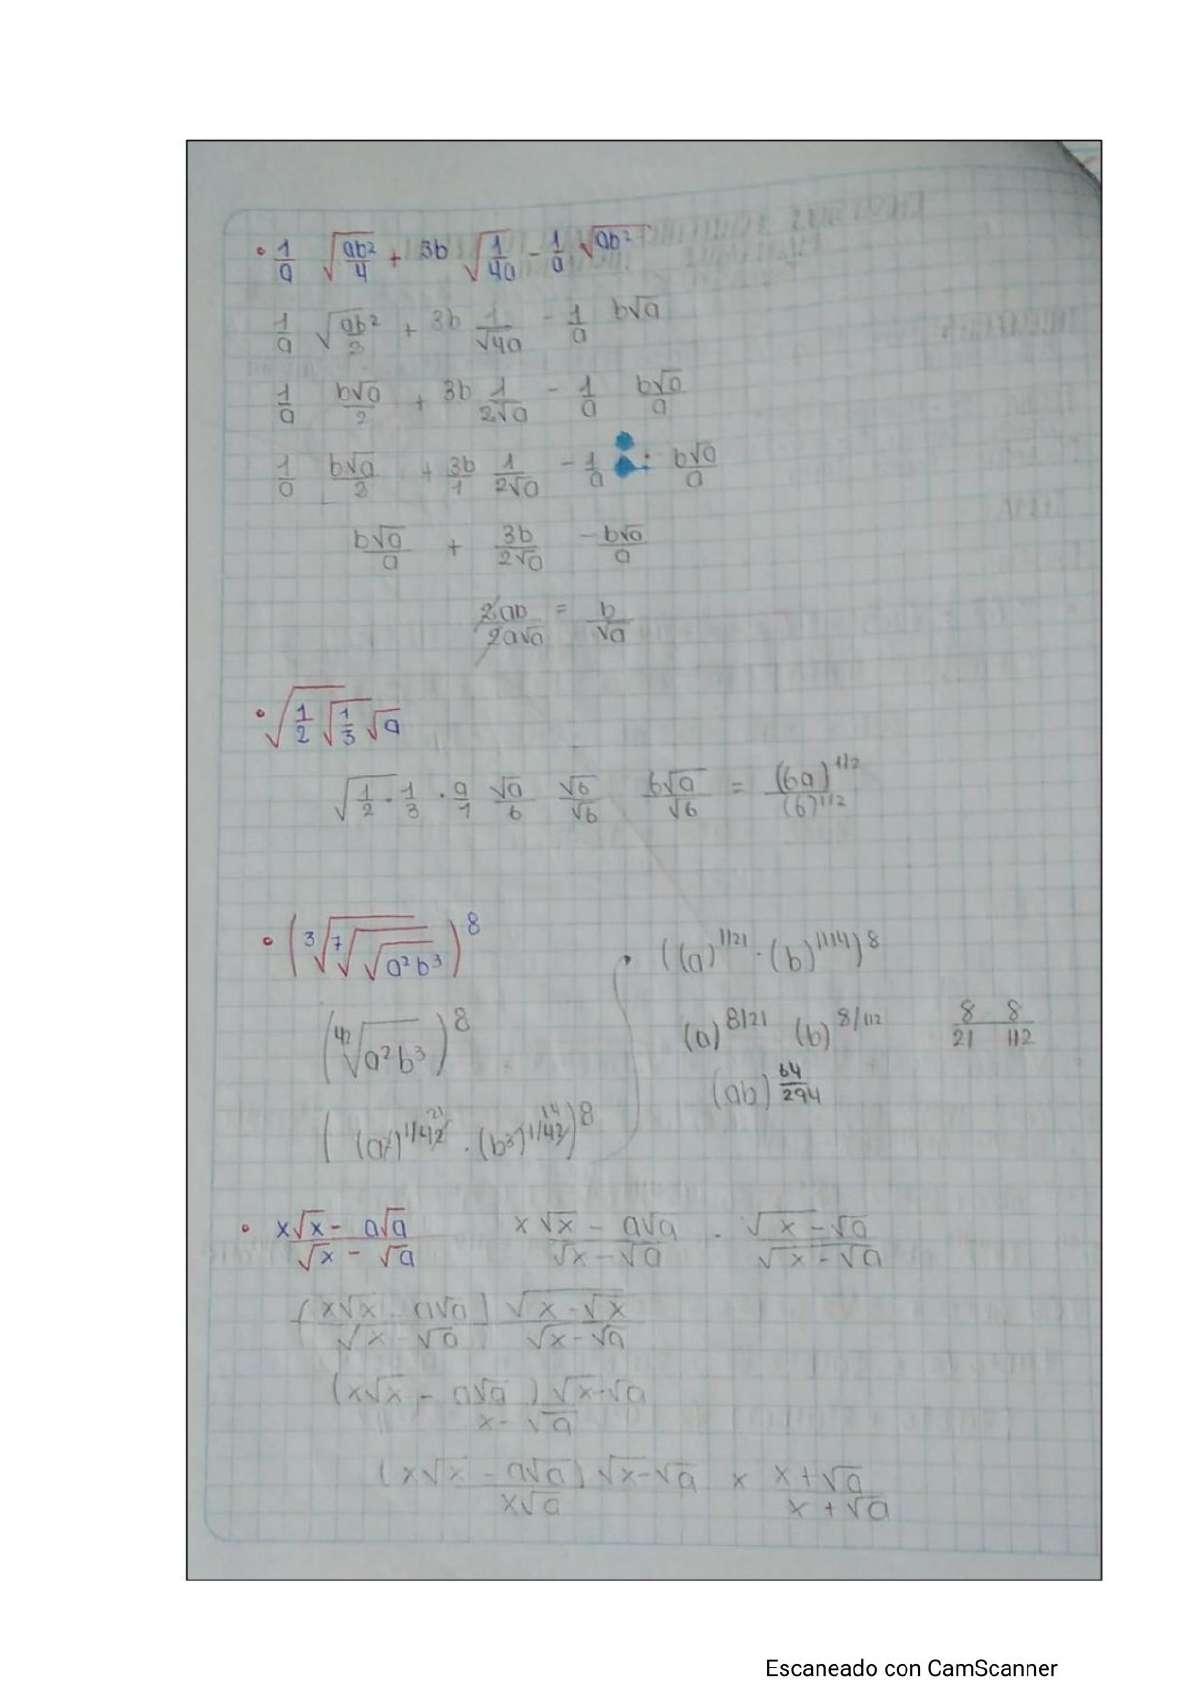 • 1/a √(ab²/4) + 3b √(1/4a) - 1/a √(ab²)
1/a √(ab²)/2 + 3b 1/√4a - 1/a b√a
1/a b√a/2 + 3b 1/2√a - 1/a b√a/a
1/a b√a/2 + 3b/1 1/2√a - 1/a : b√a/a
b√a/a + 3b/2√a - b√a/a
2ab/2a√a = b/√a
• √(1/2 √(1/3 √a
√(1/2 · 1/3 · a/1 √a/6 √6/√6 6√a/√6 = (6a)^1/2 / (6)^1/2
• (³√⁷√√a²b³)⁸
(⁴²√a²b³)⁸
((a²)^1/42 21 · (b³)^1/42 14)⁸
• ((a)^1/21 · (b)^1/14)⁸
(a)^8/21 (b)^8/112 8/21 8/112
(ab)^64/294
• x√x - a√a / √x - √a x√x - a√a / √x - √a · √x - √a / √x - √a
(x√x - a√a / √x - √a) √x - √x / √x - √a
(x√x - a√a) √x - √a / x - √a
(x√x - a√a) √x - √a / x√a x x + √a / x + √a
Escaneado con CamScanner